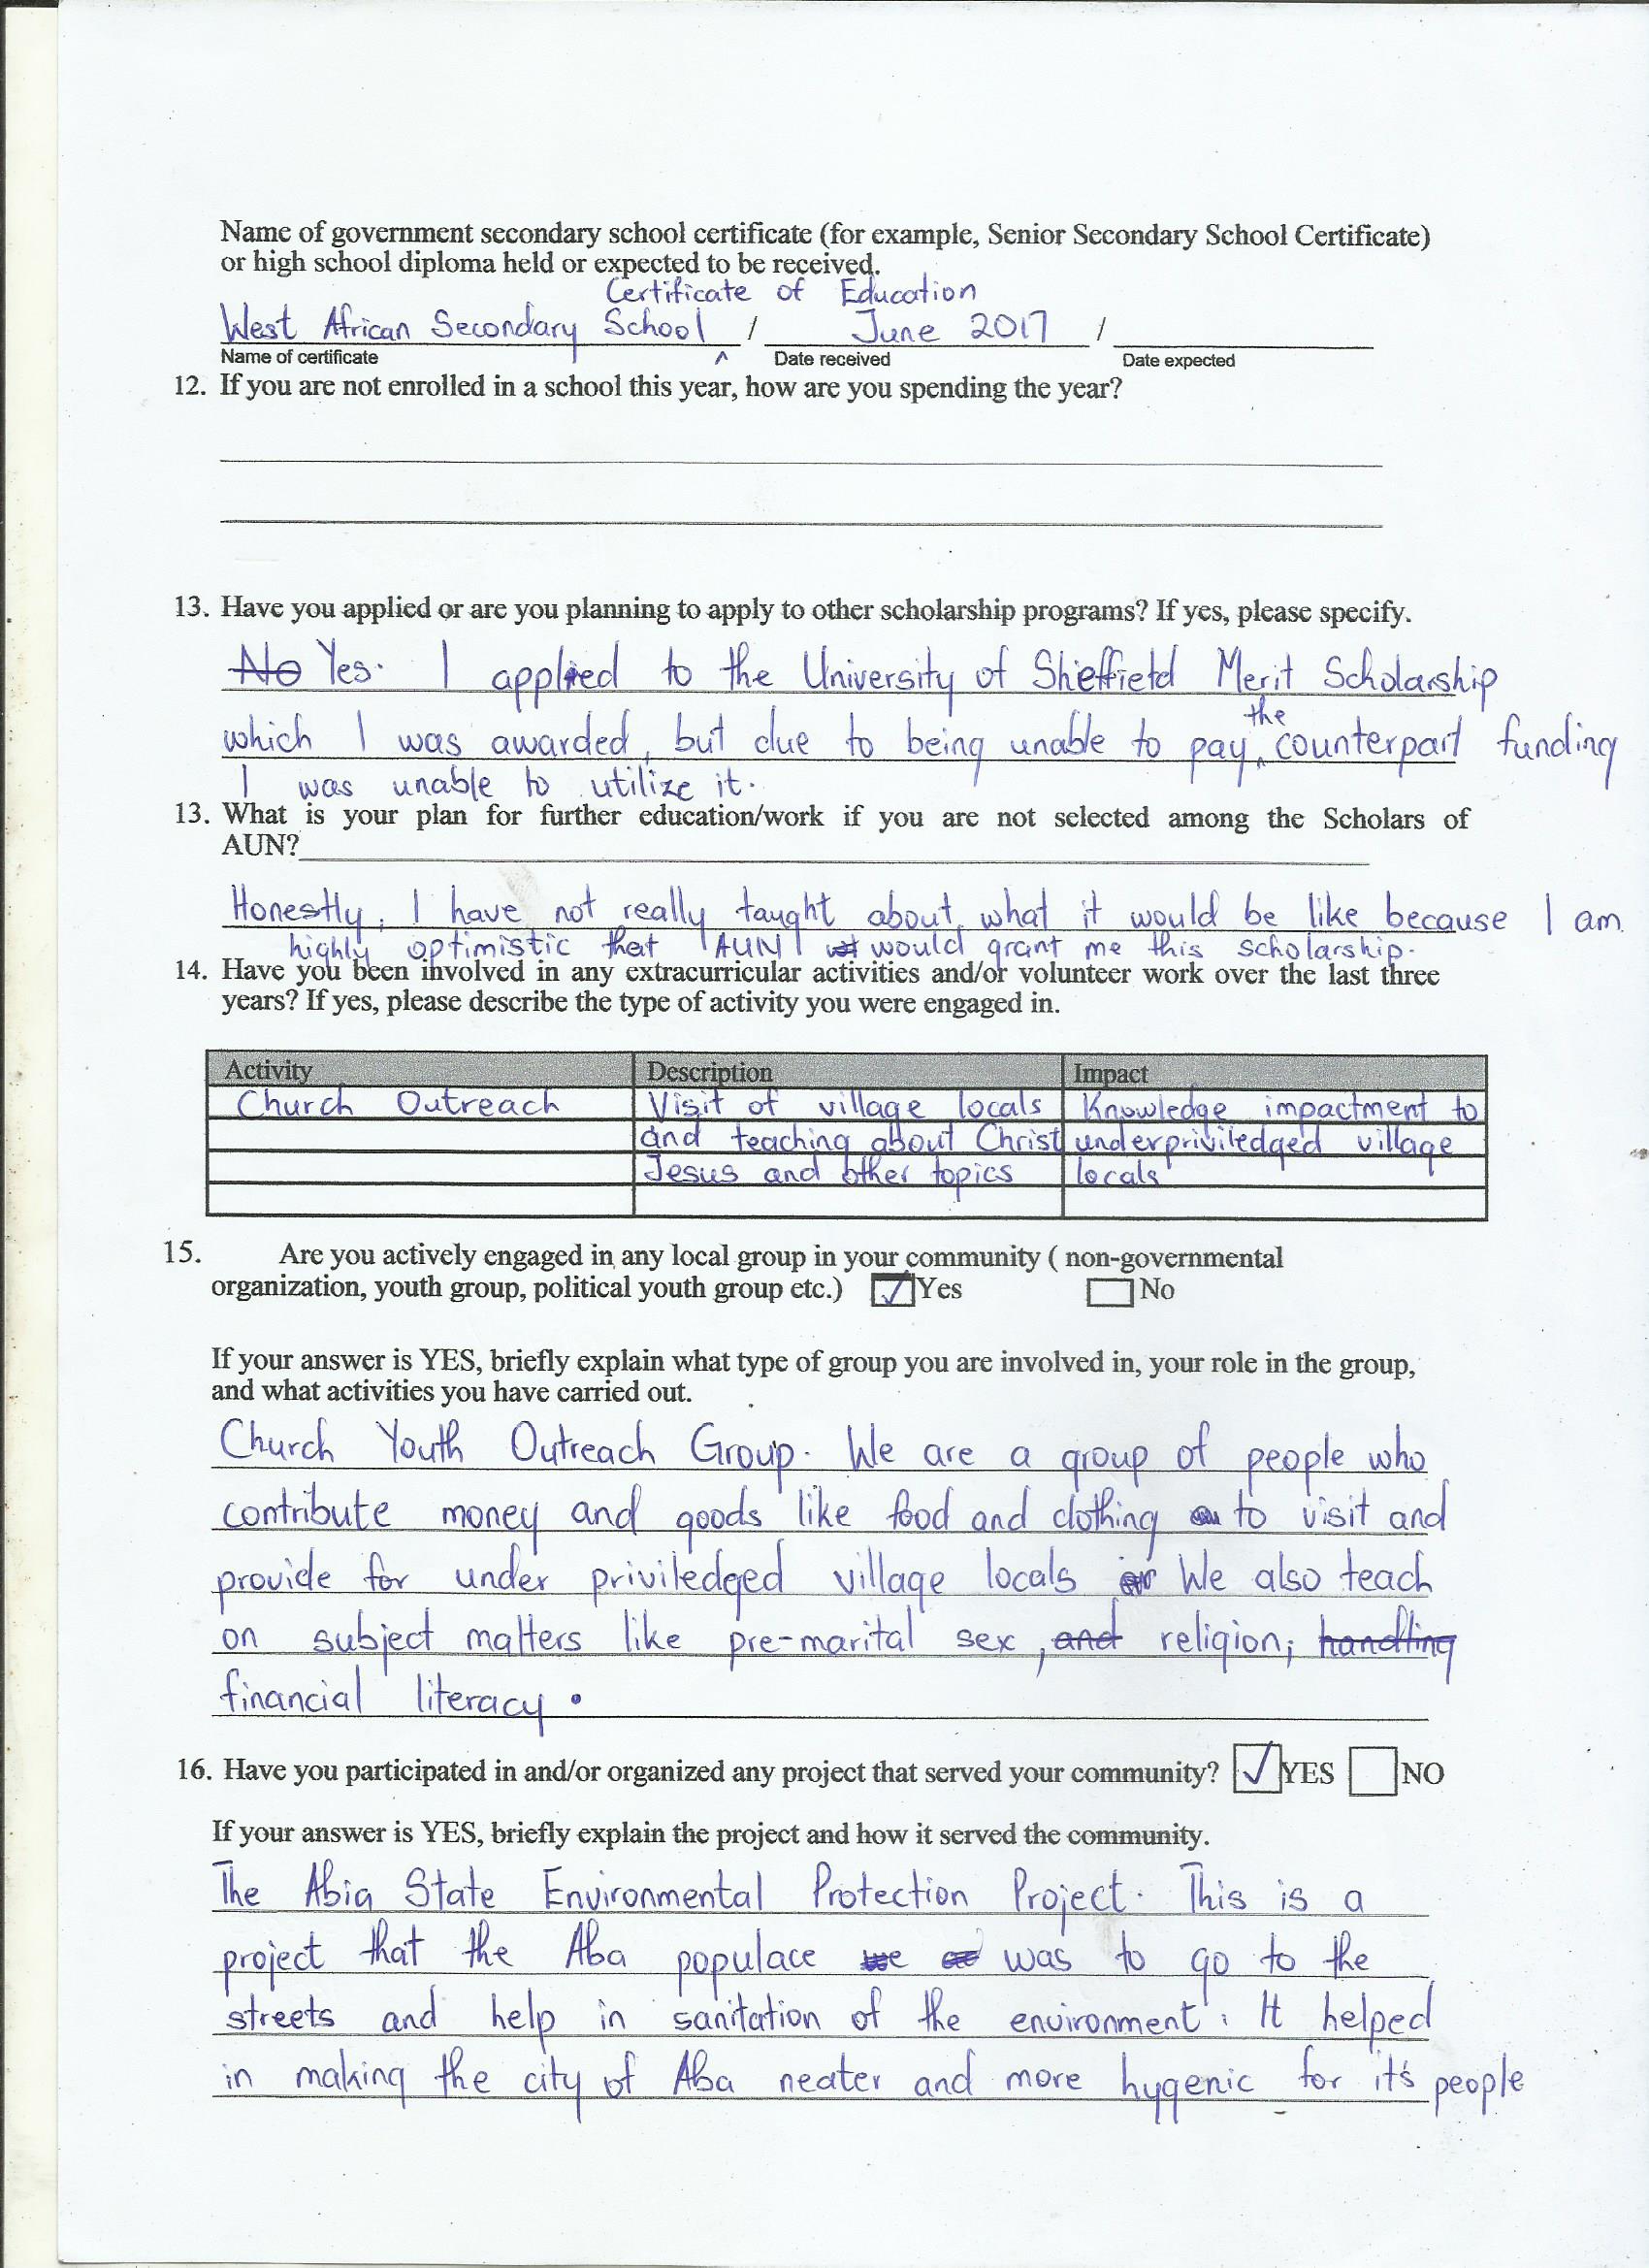 Name of government secondary school certificate (for example, Senior Secondary School Certificate)
or high school diploma held or expected to be received.
Certificate of Education
West African Secondary School / June 2017 /
Name of certificate ^ Date received Date expected
12. If you are not enrolled in a school this year, how are you spending the year?
13. Have you applied or are you planning to apply to other scholarship programs? If yes, please specify.
No Yes. I applied to the University of Sheffield Merit Scholarship
the
which I was awarded, but due to being unable to pay ^ counterpart funding
I was unable to utilize it.
13. What is your plan for further education/work if you are not selected among the Scholars of
AUN?
Honestly, I have not really taught about what it would be like because I am
highly optimistic that AUN would grant me this scholarship.
14. Have you been involved in any extracurricular activities and/or volunteer work over the last three
years? If yes, please describe the type of activity you were engaged in.
Activity Description Impact
Church Outreach Visit of village locals Knowledge impactment to
and teaching about Christ underpriviledged village
Jesus and other topics locals
15. Are you actively engaged in any local group in your community ( non-governmental
organization, youth group, political youth group etc.) ✓ Yes No
If your answer is YES, briefly explain what type of group you are involved in, your role in the group,
and what activities you have carried out.
Church Youth Outreach Group. We are a group of people who
contribute money and goods like food and clothing to visit and
provide for under priviledged village locals We also teach
on subject matters like pre-marital sex, and religion, handling
financial literacy.
16. Have you participated in and/or organized any project that served your community? ✓ YES NO
If your answer is YES, briefly explain the project and how it served the community.
The Abia State Environmental Protection Project. This is a
project that the Aba populace was to go to the
streets and help in sanitation of the environment. It helped
in making the city of Aba neater and more hygenic for it's people